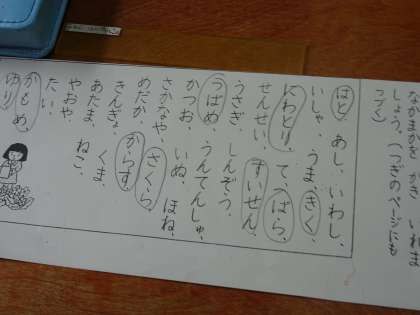 かき いれま
しょう。(つぎのページにも
つづく)
はと、あし、いわし、
いしゃ、うま、きく、
にわとり、て、ばら、
せんせい、すいせん、
うさぎ、しんぞう、
つばめ、うんてんしゅ、
かつお、いぬ、ほね、
さかなや、さくら、
めだか、からす、
きんぎょ、くま、
あたま、ねこ、
やおや、
たい、
かもめ、
ゆり